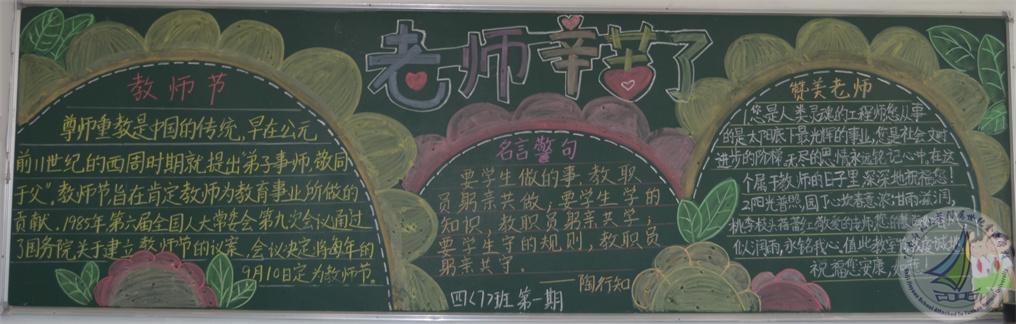 老师辛苦了
教师节
尊师重教是中国的传统,早在公元
前11世纪的西周时期就提出弟子事师,敬同
于父"。教师节旨在肯定教师为教育事业所做的
贡献。1985年第六届全国人大常委会第九次会议通过
了国务院关于建立教师节的议案,会议决定将每年的
9月10日定为教师节。
名言警句
要学生做的事,教职
员躬亲共做;要学生学的
知识,教职员躬亲共学;
要学生守的规则,教职员
躬亲共守。
——陶行知
四〈7〉班第一期
赞美老师
您是人类灵魂的工程师,您从事
的是太阳底下最光辉的事业,您是社会文明
进步的阶梯,无尽的恩情永远铭记心中,在这
个属于教师的日子里深深地祝福您!
阳光普照,园丁心坎春意浓;甘雨滋润,
桃李枝头蓓蕾红。敬爱的老师,您的
似润雨,永铭我心,值此教
祝福您安康